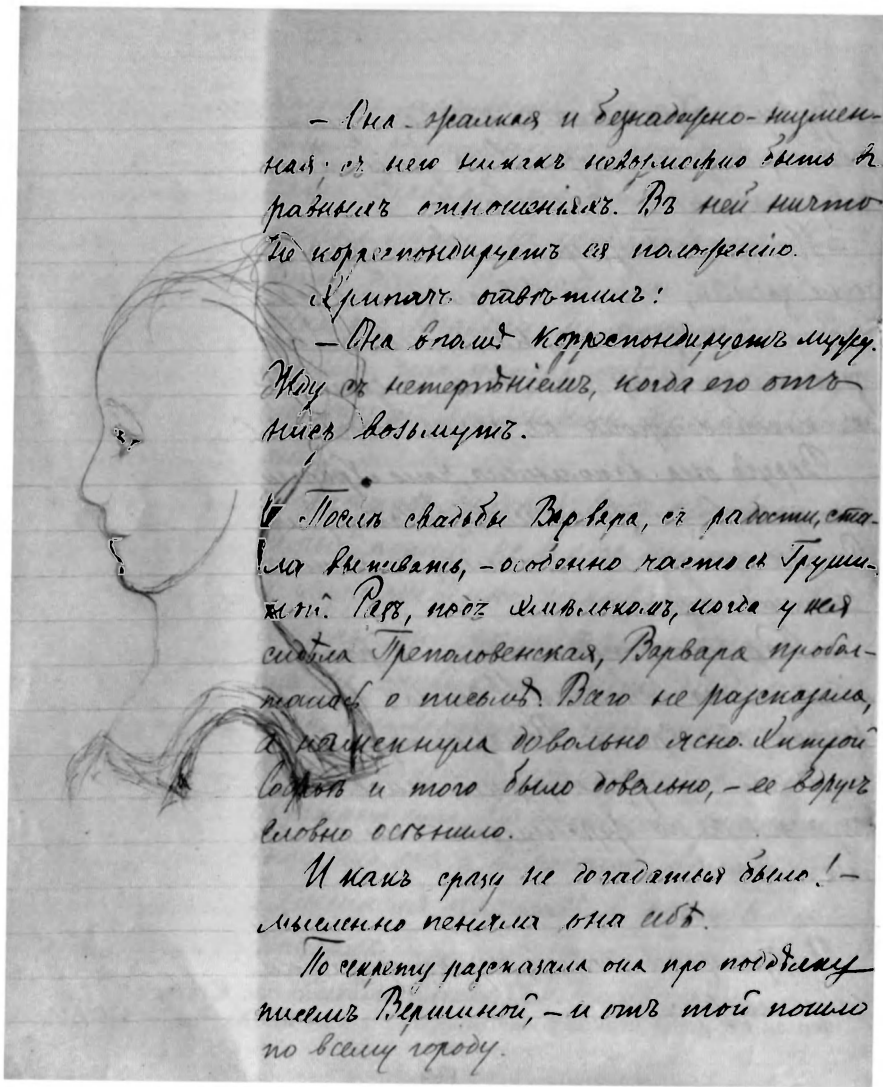 — Она жалкая и безнадежно-низмен-
ная; съ нею никакъ невозможно быть въ
равныхъ отношеніяхъ. Въ ней ничто
не корреспондируетъ ея положенію.
Хрипачъ отвѣтилъ:
— Она вполнѣ корреспондируетъ мужу.
Жду съ нетерпѣніемъ, когда его отъ
насъ возьмутъ.
Послѣ свадьбы Варвара, съ радости, ста-
ла выпивать, — особенно часто съ Груши-
ной. Разъ, подъ хмѣлькомъ, когда у нея
сидѣла Преполовенская, Варвара пробол-
талась о письмѣ. Всего не разсказала,
а намекнула довольно ясно. Хитрой
Софьѣ и того было довольно, — ее вдругъ
словно осѣнило.
И какъ сразу не догадаться было! —
мысленно пеняла она себѣ.
По секрету разсказала она про поддѣлку
писемъ Вершиной, — и отъ той пошло
по всему городу.